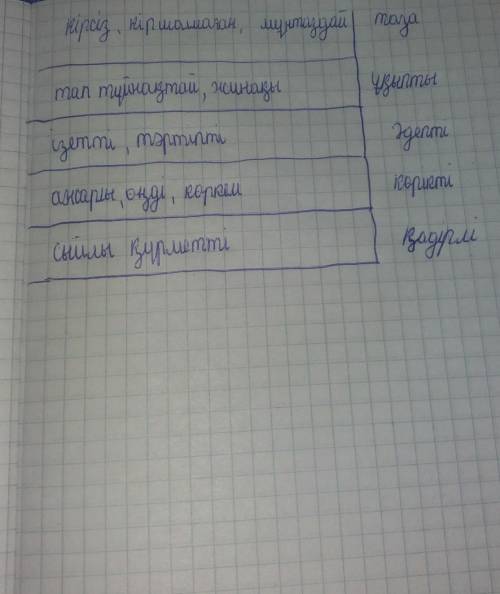 кірсіз, кіршалмаған, мұнтаздай таза
тап тұйнақтай, жинақы ұқыпты
ізетті, тәртіпті әдепті
ажарлы, өңді, көркем көрікті
сыйлы құрметті қадірлі